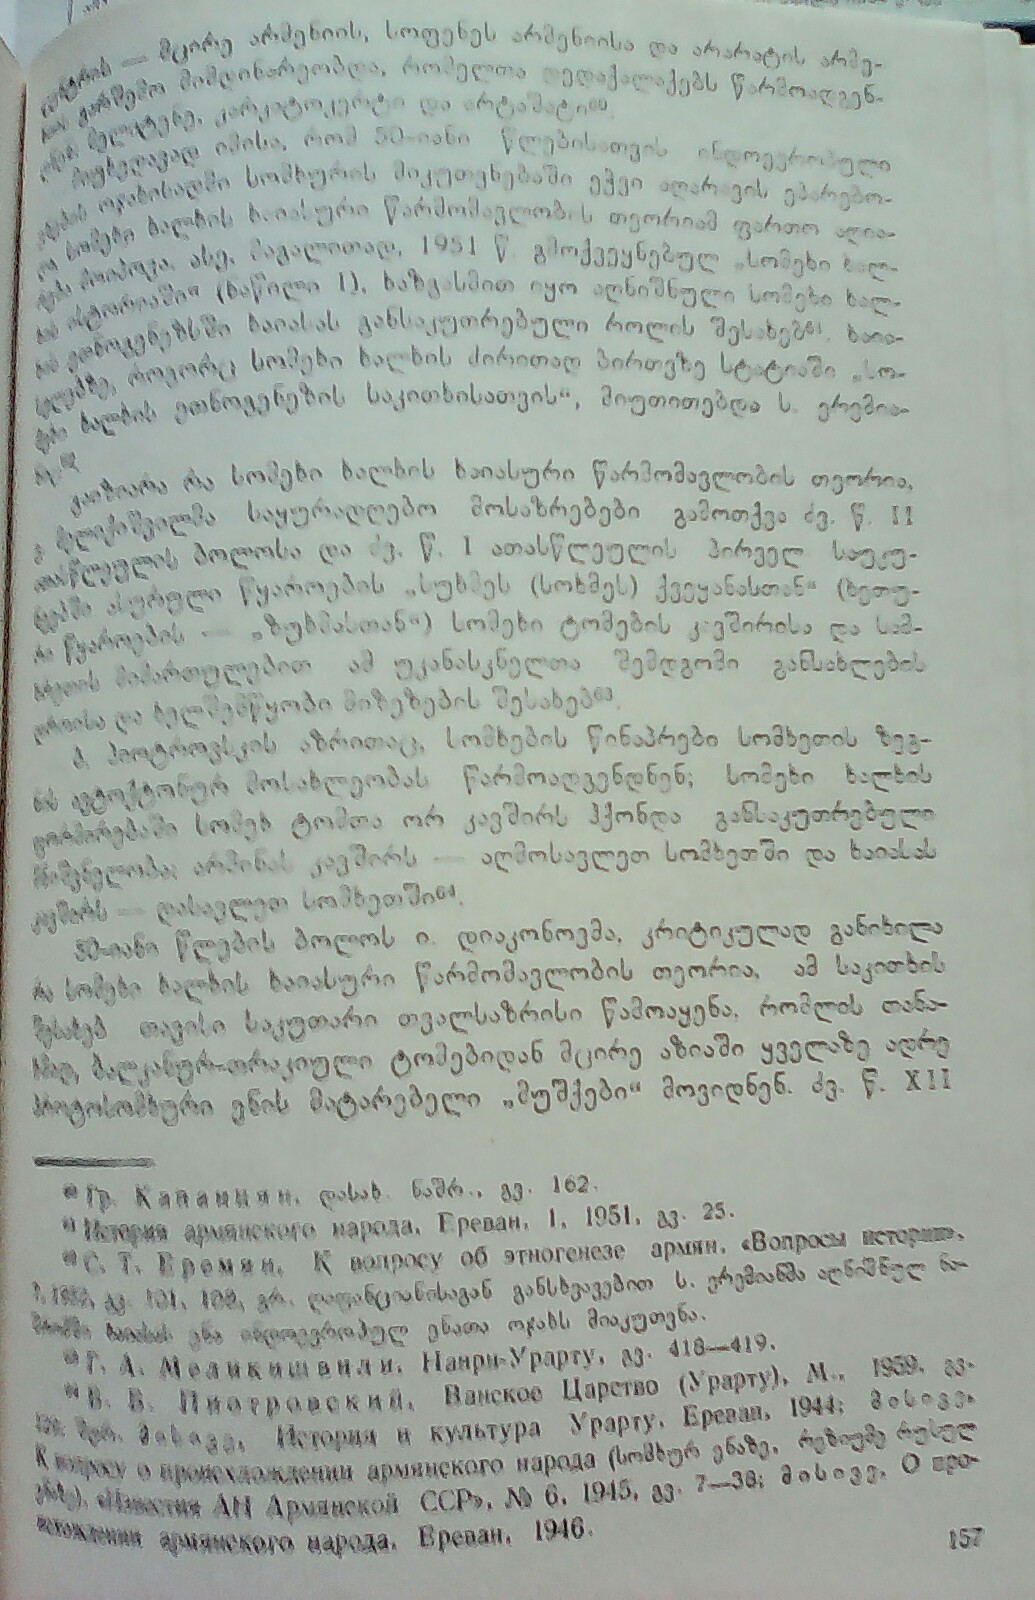 — მცირე არმენიის, სოფენეს არმენიისა და არარატის არმე-
გარშემო მიმდინარეობდა, რომელთა დედაქალაქებს წარმოადგენ-
მელიტენე, კარკატოკერტი და არტაშატი⁶⁰.
მიუხედავად იმისა, რომ 50-იანი წლებისათვის ინდოევროპული
ოჯახისადმი სომხურის მიკუთვნებაში ეჭვი აღარავის ეპარებო-
და სომეხი ხალხის ხაიასური წარმომავლობის თეორიამ ფართო აღია-
რება მოიპოვა. ასე, მაგალითად, 1951 წ. გმოქვეყნებულ „სომეხი ხალ-
ხის ისტორიაში“ (ნაწილი I), ხაზგასმით იყო აღნიშნული სომეხი ხალ-
ხის ეთნოგენეზში ხაიასას განსაკუთრებული როლის შესახებ⁶¹. ხაია-
სელებზე, როგორც სომეხი ხალხის ძირითად პირთვზე სტატიაში „სო-
მეხი ხალხის ეთნოგენეზის საკითხისათვის“, მიუთითებდა ს. ერემია-
ნი⁶²
გაიზიარა რა სომეხი ხალხის ხაიასური წარმომავლობის თეორია,
გ. მელიქიშვილმა საყურადღებო მოსაზრებები გამოთქვა ძვ. წ. II
ათასწლეულის ბოლოსა და ძვ. წ. I ათასწლეულის პირველ საუკუ-
ნეებში ასურული წყაროების „სუხმეს (სოხმეს) ქვეყანასთან“ (ხეთუ-
რი წყაროების — „ზუხმასთან“) სომეხი ტომების კავშირისა და სამ-
ხრეთის მიმართულებით ამ უკანასკნელთა შემდგომი განსახლების
დროისა და ხელშემწყობი მიზეზების შესახებ⁶³.
ბ. პიოტროვსკის აზრითაც, სომხების წინაპრები სომხეთის ზეგ-
ნის ავტოქტონურ მოსახლეობას წარმოადგენდნენ; სომეხი ხალხის
ფორმირებაში სომეხ ტომთა ორ კავშირს ჰქონდა განსაკუთრებული
მნიშვნელობა: არმინას კავშირს — აღმოსავლეთ სომხეთში და ხაიასას
კავშირს — დასავლეთ სომხეთში⁶⁴.
50-იანი წლების ბოლოს ი. დიაკონოვმა, კრიტიკულად განიხილა
რა სომეხი ხალხის ხაიასური წარმომავლობის თეორია, ამ საკითხის
შესახებ თავისი საკუთარი თვალსაზრისი წამოაყენა, რომლის თანა-
ხმად, ბალკანურ-თრაკიული ტომებიდან მცირე აზიაში ყველაზე ადრე
პროტოსომხური ენის მატარებელი „მუშქები“ მოვიდნენ. ძვ. წ. XII
⁶⁰ Гр. Капанцян, დასახ. ნაშრ., გვ. 162.
⁶¹ История армянского народа, Ереван, I, 1951, გვ. 25.
⁶² С. Т. Еремян, К вопросу об этногенезе армян, «Вопросы истории»,
გვ. 101, 108, გრ. ღაფანციანისაგან განსხვავებით ს. ერემიანმა აღნიშნულ ნა-
შრომში ხაიასას ენა ინდოევროპულ ენათა ოჯახს მიაკუთვნა.
⁶³ Г. А. Меликишвили, Наири-Урарту, გვ. 418—419.
⁶⁴ Б. Б. Пиотровский, Ванское Царство (Урарту), М., 1959, გვ.
შდრ. მისივე, История и культура Урарту, Ереван, 1944; მისივე,
К вопросу о происхождении армянского народа (სომხურ ენაზე, რეზიუმე რუსულ
ენაზე), «Известия АН Армянской ССР», № 6, 1945, გვ. 7—38; მისივე, О про-
исхождении армянского народа, Ереван, 1946.
157